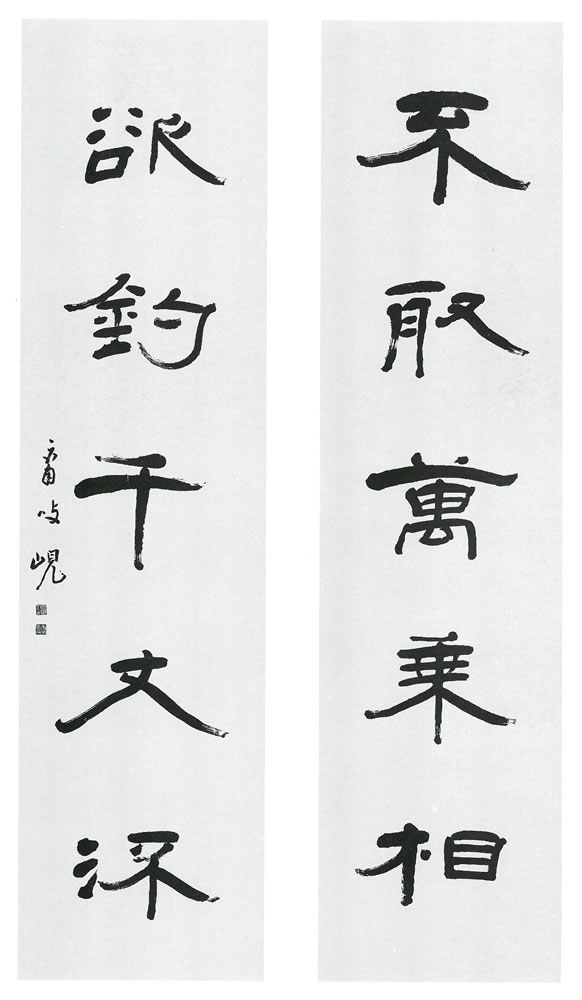 不取萬乘相
欲釣千丈深
峴